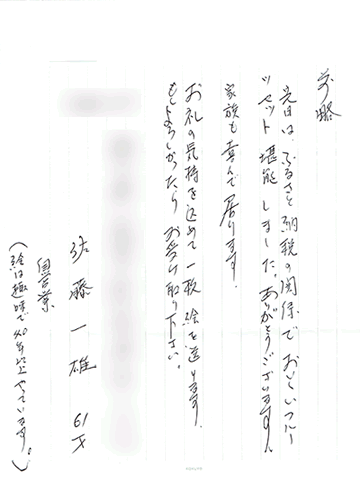 前略
先日は、ふるさと納税の関係でおいしいフルー
ツセット堪能しました。ありがとうございます。
家族も喜んで居ります。
お礼の気持を込めて一枚絵を送ります。
もしよろしかったらお受け取り下さい。
佐藤一雄 61才
自営業
(絵は趣味で40年以上やっています。)